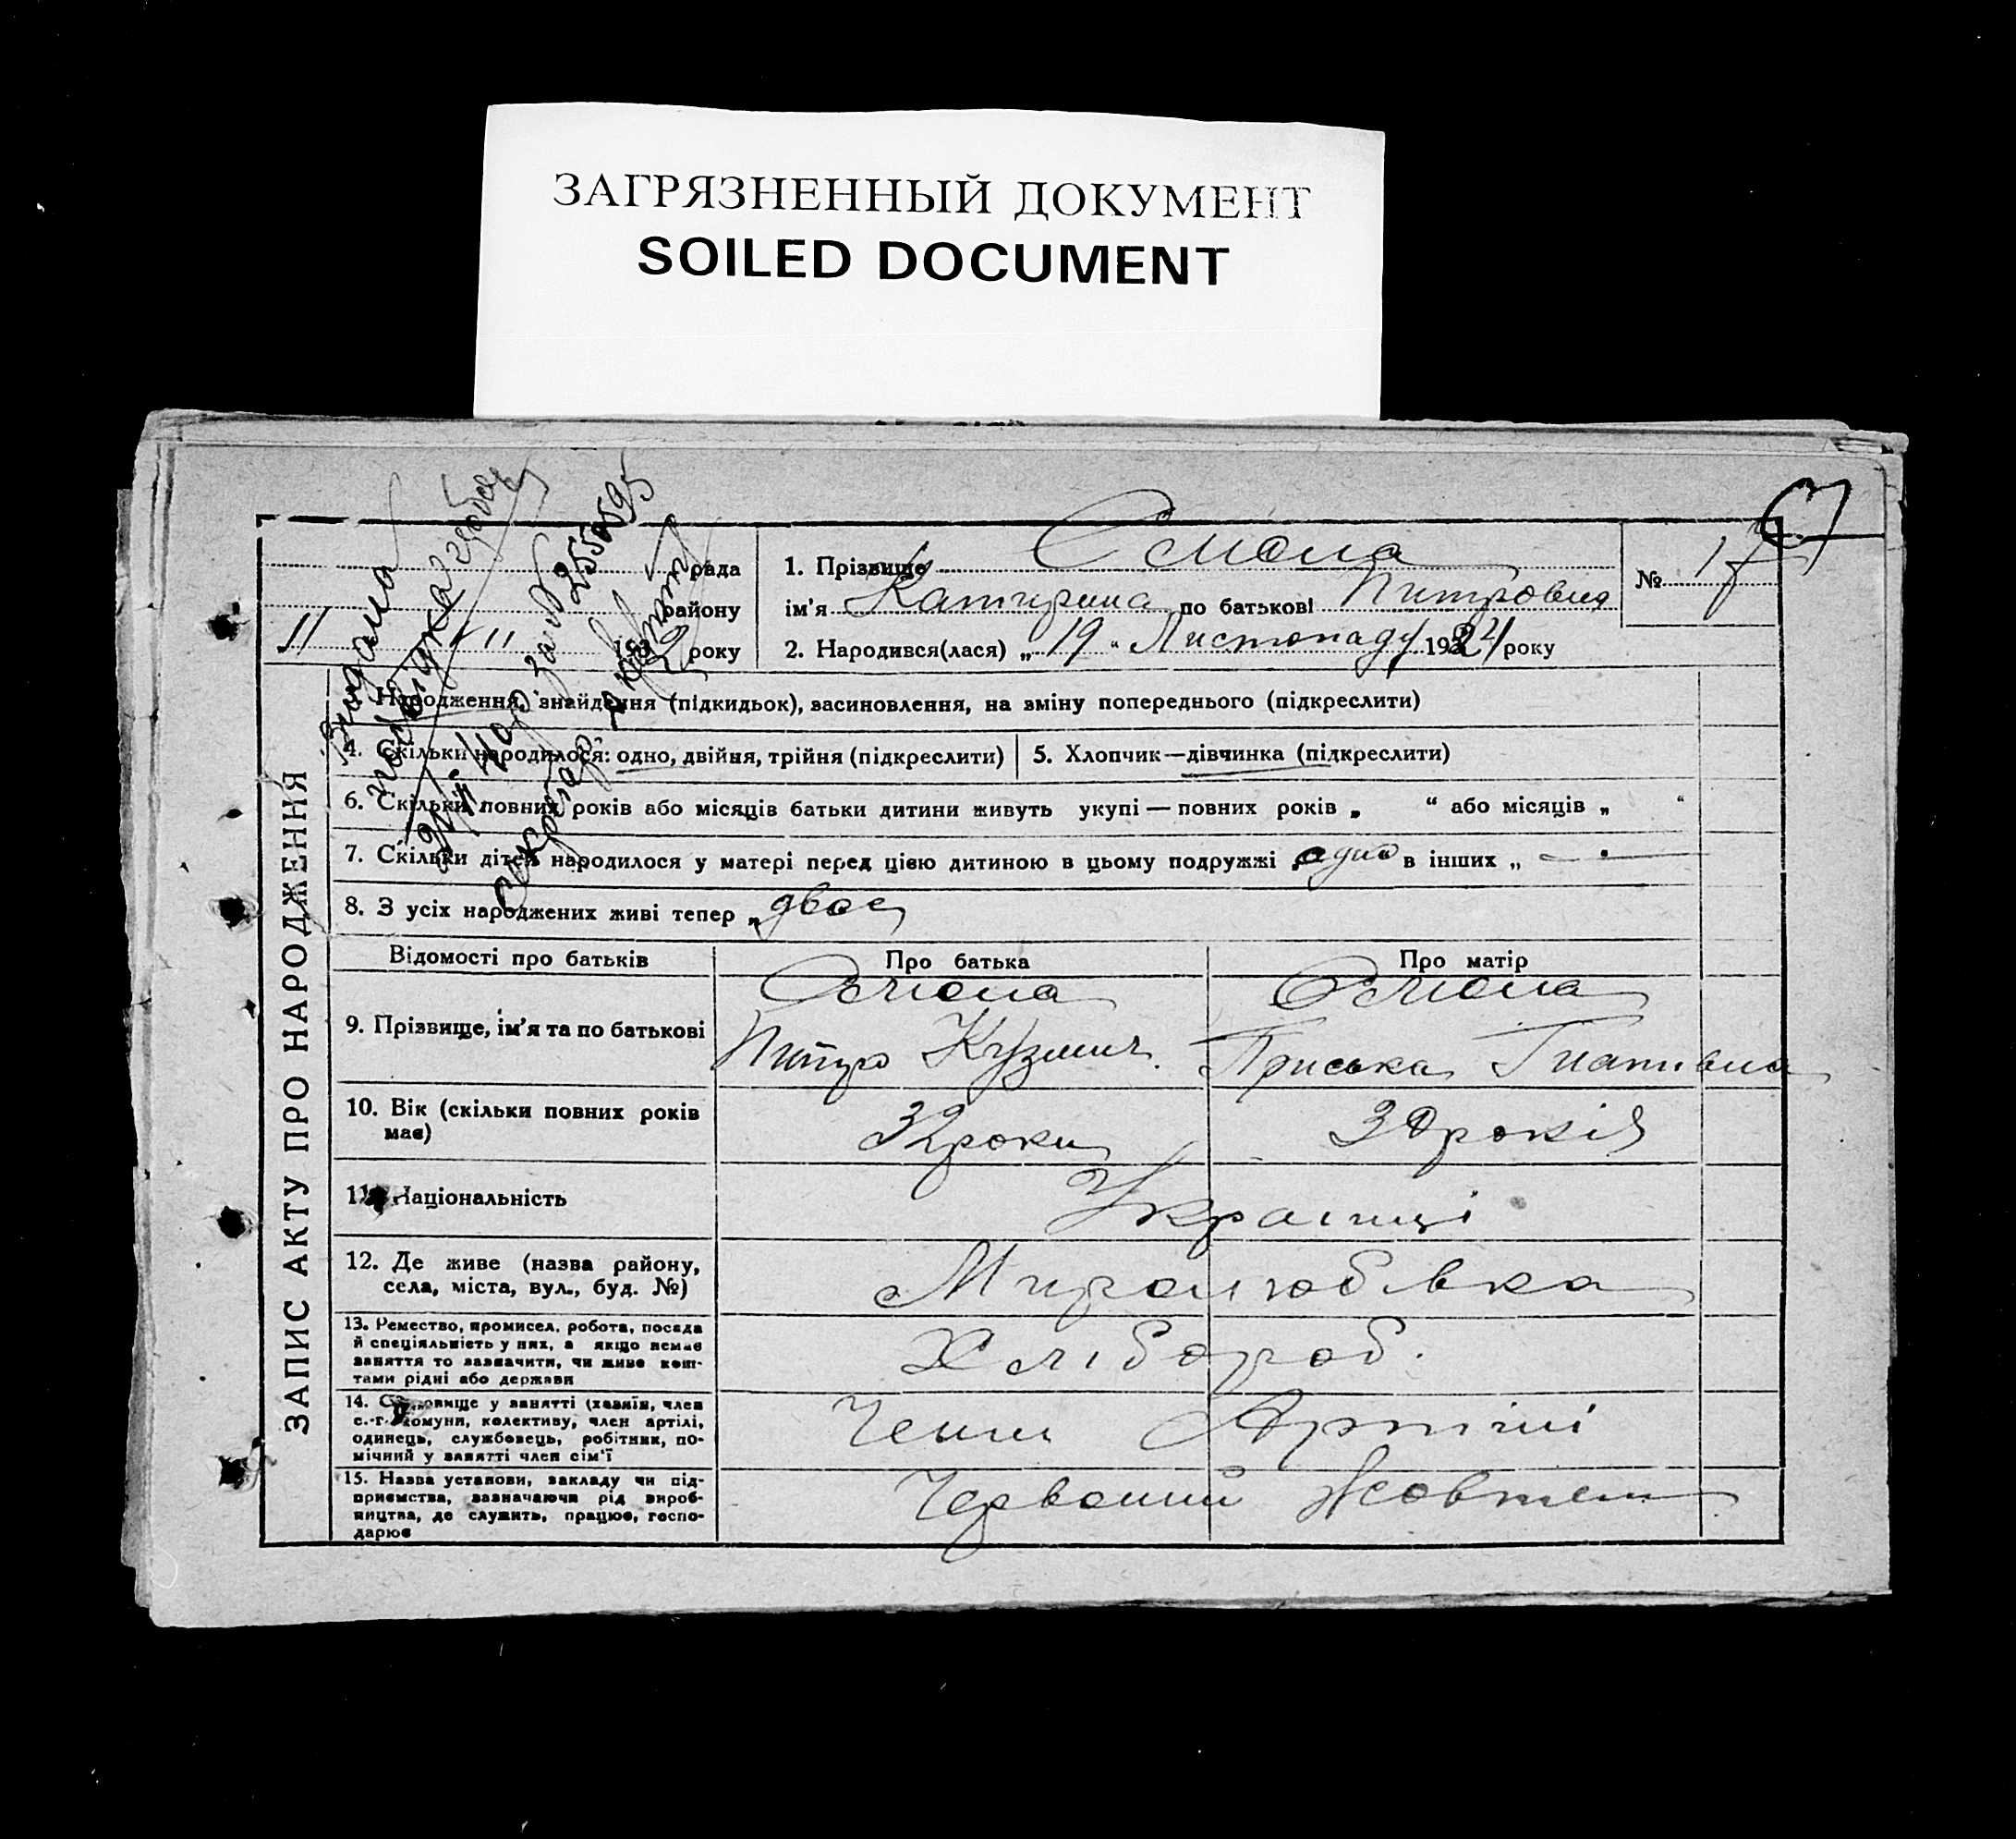 ЗАГРЯЗНЕННЫЙ ДОКУМЕНТ
SOILED DOCUMENT
рада
району
11 VII року
1. Прізвище Смола
№ 17
ім'я Катирина по батькові Питровна
2. Народився(лася) „ 19 “ Листопаду 192 року
Видана
Народження, знайдення (підкидьок), засиновлення, на зміну попереднього (підкреслити)
4. Скільки народилося: одно, двійня, трійня (підкреслити)
5. Хлопчик—дівчинка (підкреслити)
6. Скільки повних років або місяців батьки дитини живуть укупі — повних років „ “ або місяців „ “
7. Скільки дітей народилося у матері перед цією дитиною в цьому подружжі одно в інших „ —
8. З усіх народжених живі тепер „ двоє
ЗАПИС АКТУ ПРО НАРОДЖЕННЯ
Відомості про батьків
Про батька
Про матір
9. Прізвище, ім'я та по батькові
Смола
Питро Кузмич.
Смола
Приська Гнативна
10. Вік (скільки повних років
має)
32 роки
30 років
11. Національність
Украінці
12. Де живе (назва району,
села, міста, вул., буд. №)
Миролюбівка
13. Ремество, промисел, робота, посада
й спеціяльність у них, а якщо немає
заняття то зазначити, чи живе кош-
тами рідні або держави
Хлібороб.
14. Становище у занятті (хазяїн, член
с.-г. комуни, колективу, член артілі,
одинець, службовець, робітник, по-
мічний у занятті член сім'ї
Член Артілі
15. Назва установи, закладу чи під-
приємства, зазначаючи рід вироб-
ництва, де служить, працює, госпо-
дарює
Червоний Жовтень